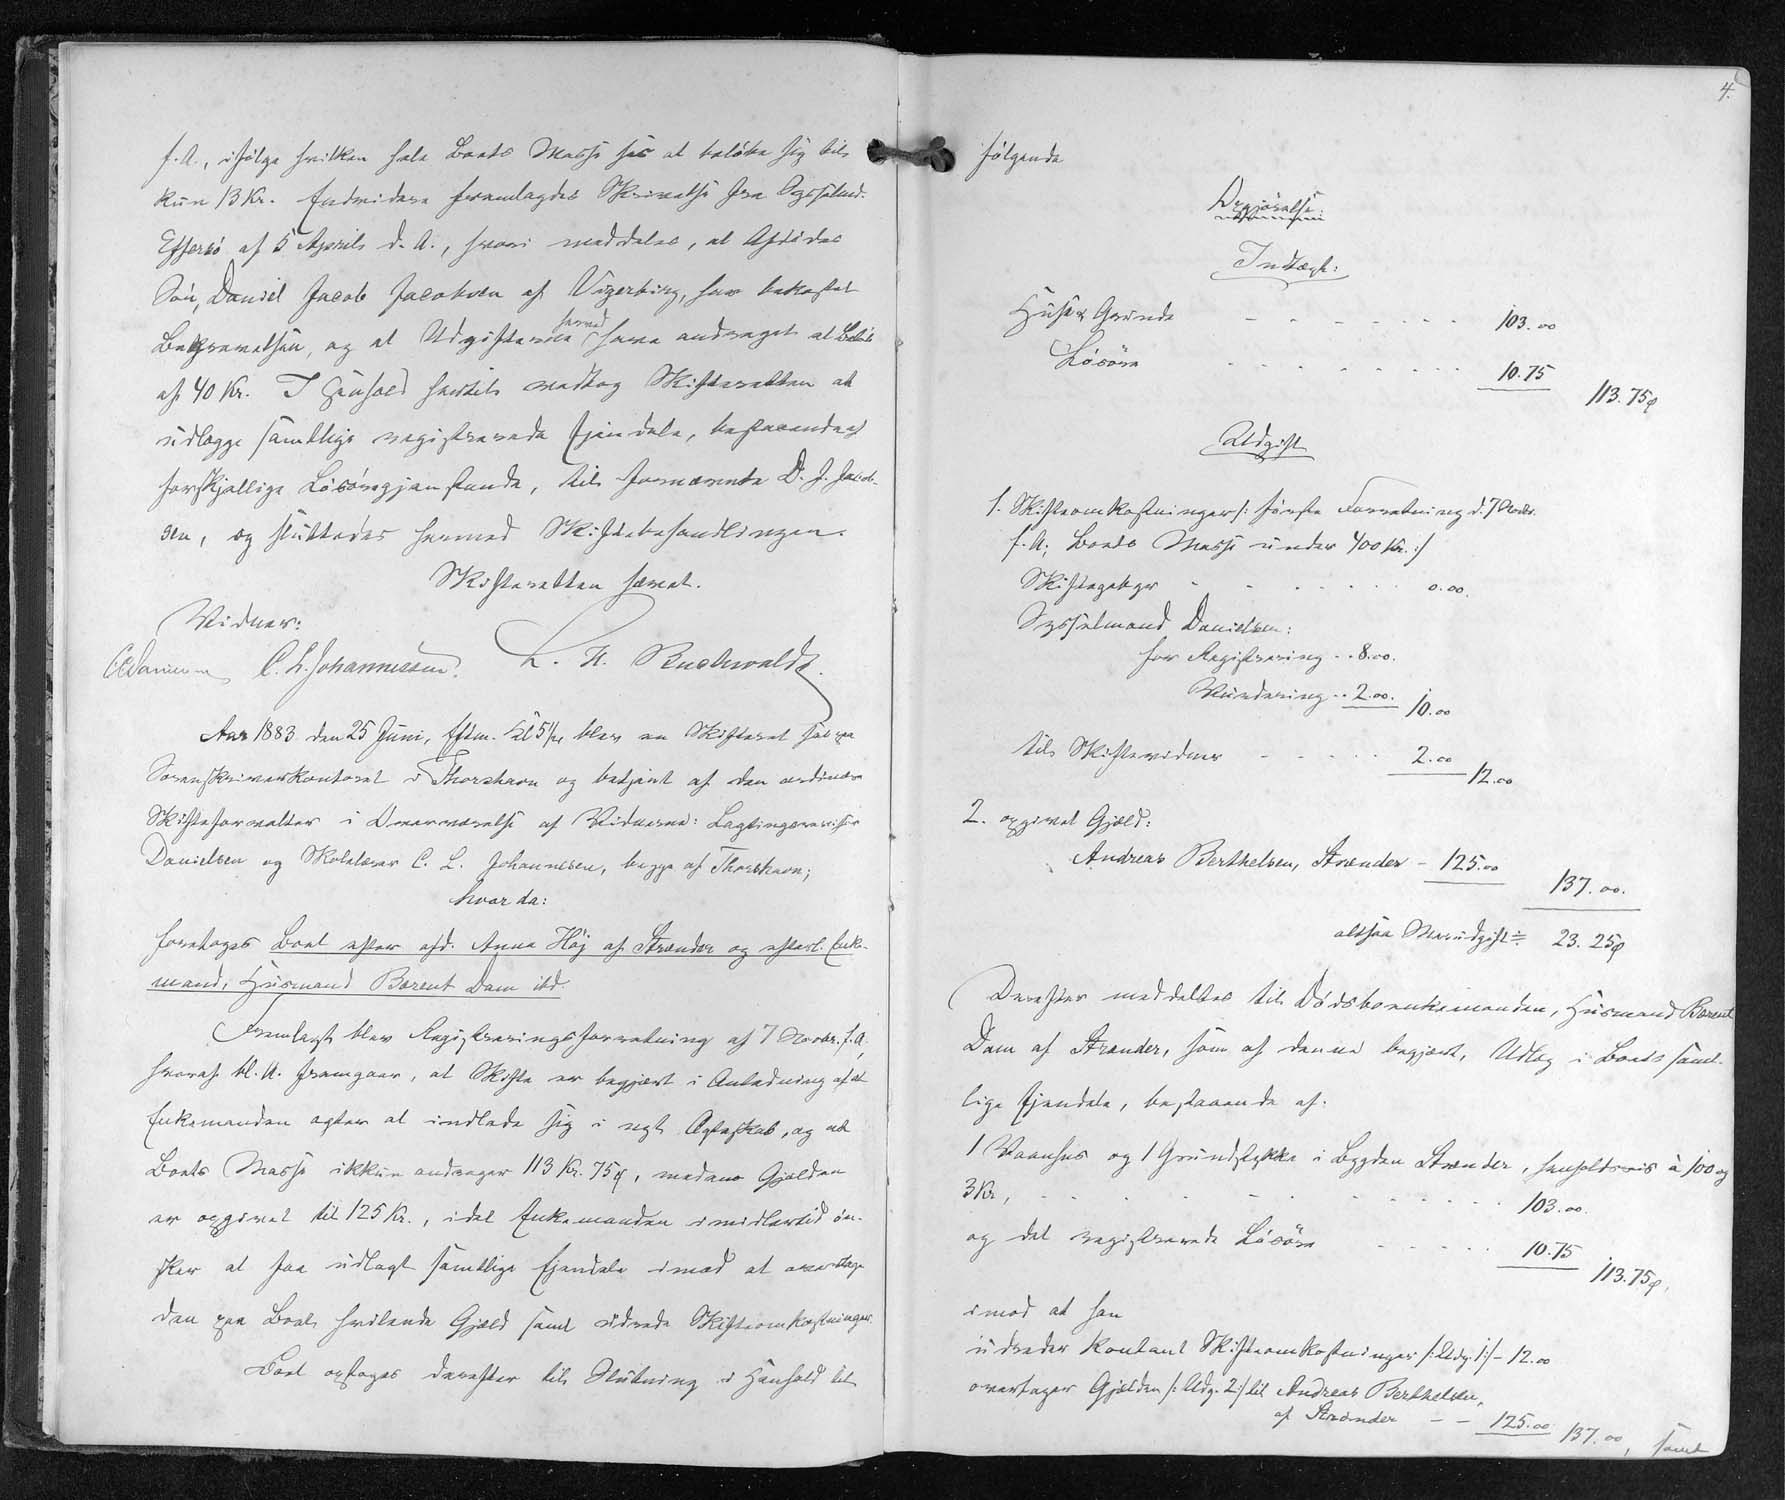 f. A., ifølge hvilken hele Boets Masse ses at beløbe sig til
kun 13 Kr. Endvidere fremlagdes Skrivelse fra Sysselmd.
Effersö af 5 April d. A., hvori meddeles, at Afdødes
Søn, Daniel Jacob Jacobsen af Vigerbirg, har bekostet
Begravelsen, og at Udgifterne herved have andraget et Beløb
af 40 Kr. I Henhold hertil vedtog Skifteretten at
udlægge samtlige registrerede Ejendele, bestaaende af
forskjellige Løsøregjenstande, til fornævnte D. J. Jacob-
sen, og sluttedes hermed Skiftebehandlingen.
Skifteretten hævet.
Vidner:
Danielsen C. L. Johannesen. L. H. Buchwaldt.
Aar 1883 den 25 Juni, Eftm. Kl 5½ blev en Skifteret sat paa
Sorenskriverkontoret i Thorshavn og betjent af den ordinære
Skifteforvalter i Overværelse af Vidnerne: Lagtingsrevisor
Danielsen og Skolelærer C. L. Johannesen, begge af Thorshavn;
hvor da:
foretoges Boet efter afd. Anna Høj af Strænder og efterl. Enke-
mand, Husmand Barent Dam ibd.
Fremlagt blev Registreringsforretning af 7 Novbr. f. A.,
hvoraf bl. A. fremgaar, at Skifte er begjært i Anledning af at
Enkemanden agter at indlade sig i nyt Ægteskab, og at
Boets Masse ikkun andrager 113 Kr. 75 ø, medens Gjælden
er opgivet til 125 Kr., idet Enkemanden imidlertid øn-
sker at faa udlagt samtlige Ejendele imod at overtage
den paa Boet hvilende Gjæld samt udrede Skifteomkostninger.
Boet optoges derefter til Slutning i Henhold til
4.
følgende
Opgjørelse:
Indtægt:
Huse & Grunde - - - - - - - 103.00
Løsøre - - - - - - - 10.75
113.75 ø
Udgift
1. Skifteomkostninger /: første Forretning d. 7 Novbr.
f. A; Boets Masse under 400 Kr. :/
Skiftegebyr - - - - - - 0.00.
Sysselmand Danielsen:
for Registrering - - 8.00.
Vurdering - - 2.00. 10.00
til Skiftevidner - - - - - 2.00
12.00
2. opgivet Gjæld:
Andreas Berthelsen, Strænder - 125.00
137.00.
altsaa Merudgift = 23.25 ø
Derefter meddeltes til Dødsboenkemanden, Husmand Barent
Dam af Strænder, som af denne begjært, Udlæg i Boets samt-
lige Ejendele, bestaaende af:
1 Vaanhus og 1 Grundstykke i Bygden Strænder, henholdsvis à 100 og
3 Kr, - - - - - - - - - 103.00.
og det registrerede Løsøre - - - - - 10.75
113.75 ø,
imod at han
udreder kontant Skifteomkostninger /: Udg. 1 :/ - 12.00
overtager Gjælden /: Udg. 2 :/ til Andreas Berthelsen,
af Strænder - - 125.00 137.00, samt